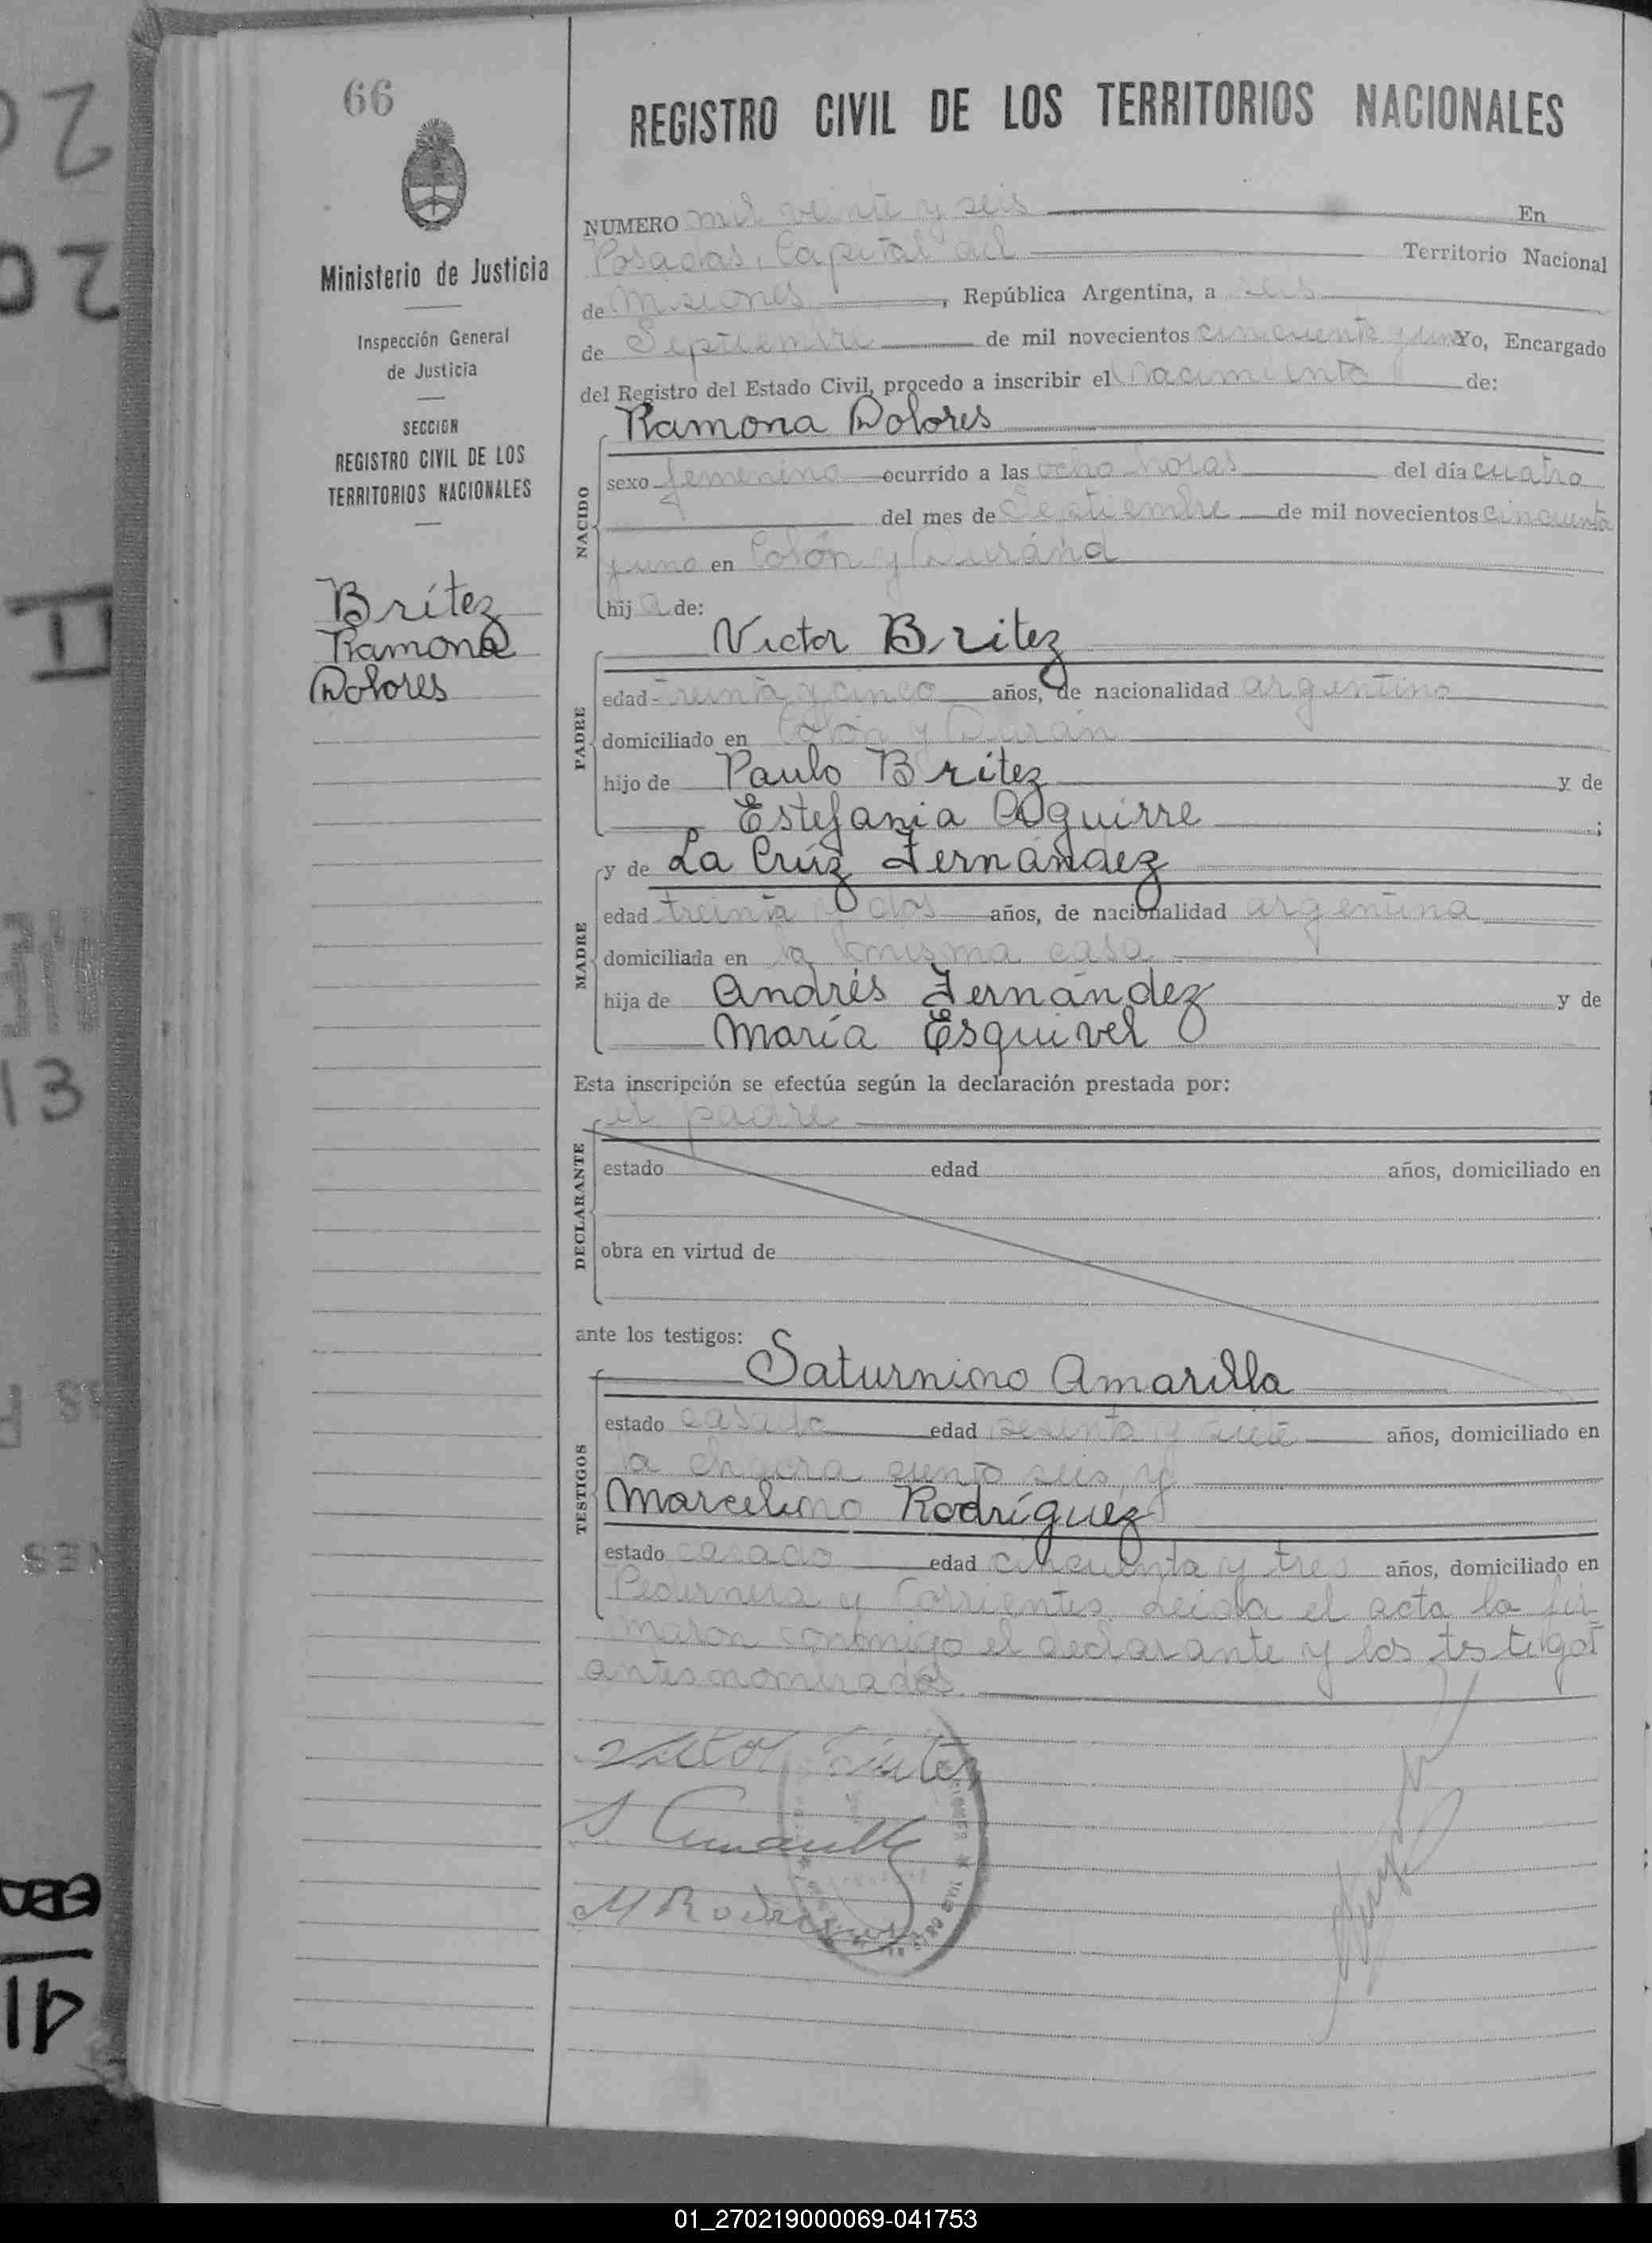 66
REGISTRO CIVIL DE LOS TERRITORIOS NACIONALES
Ministerio de Justicia
Inspección General
de Justicia
SECCION
REGISTRO CIVIL DE LOS
TERRITORIOS NACIONALES
Brítez
Ramona
Dolores
NUMERO mil veinte y seis En
Posadas, Capital del Territorio Nacional
de Misiones, República Argentina, a seis
de Septiembre de mil novecientos cincuenta y uno Yo, Encargado
del Registro del Estado Civil, procedo a inscribir el Nacimiento de:
NACIDO
Ramona Dolores
sexo femenino ocurrido a las ocho horas del día cuatro
del mes de Septiembre de mil novecientos cincuenta
y uno en Colón y Duránd
hija de:
PADRE
Victor Brítez
edad treinta y cinco años, de nacionalidad argentino
domiciliado en Colón y Durán
hijo de Paulo Brítez y de
Estefania Aguirre ;
MADRE
y de La Cruz Fernández
edad treinta y dos años, de nacionalidad argentina
domiciliada en la misma casa
hija de Andrés Fernández y de
María Esquivel
Esta inscripción se efectúa según la declaración prestada por:
DECLARANTE
el padre
estado edad años, domiciliado en
obra en virtud de
ante los testigos:
TESTIGOS
Saturnino Amarilla
estado casado edad sesenta y siete años, domiciliado en
la chacra ciento seis y
Marcelino Rodríguez
estado casado edad cincuenta y tres años, domiciliado en
Pedernera y Corrientes. Leida el acta la fir-
maron conmigo el declarante y los testigos
antes nombrados.
Victor Britez
S. Amarilla
M Rodriguez
01_270219000069-041753